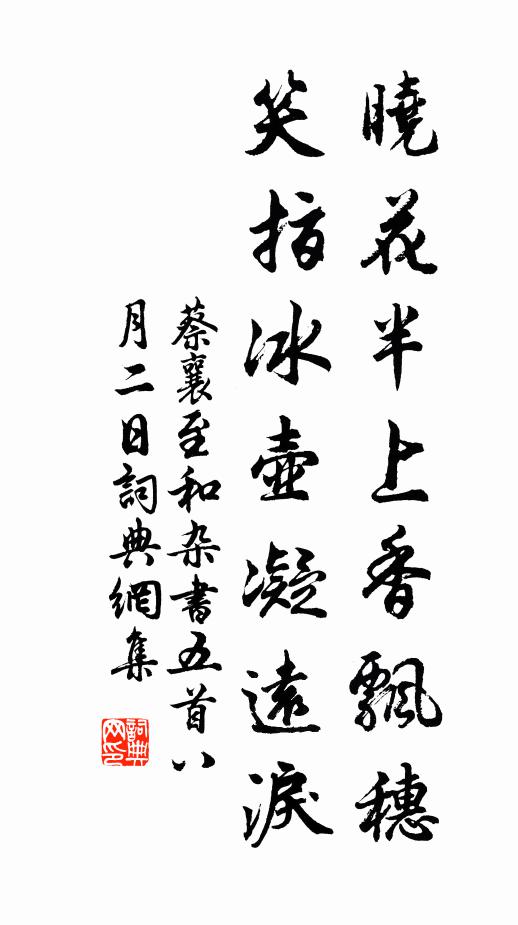 曉花半上香飄穗
笑指冰壺凝遠淚
蔡襄至和杂書五首八
月二日詞典網集
詞典网印